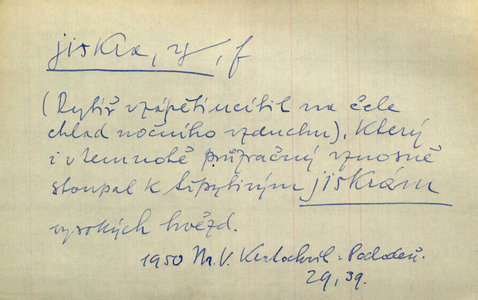 jiskra, y, f
(Rytíř vzápětí ucítil na čele
chlad nočního vzduchu), který
i v temnotě průzračný vznosně
stoupal k třpytivým jiskrám
vysokých hvězd.
1950 M.V. Kratochvíl:
29, 39.